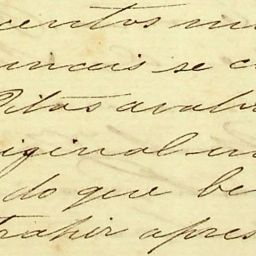 centos m
uncais se c
Pitas avalu
iginal un
do que be
trahir apres